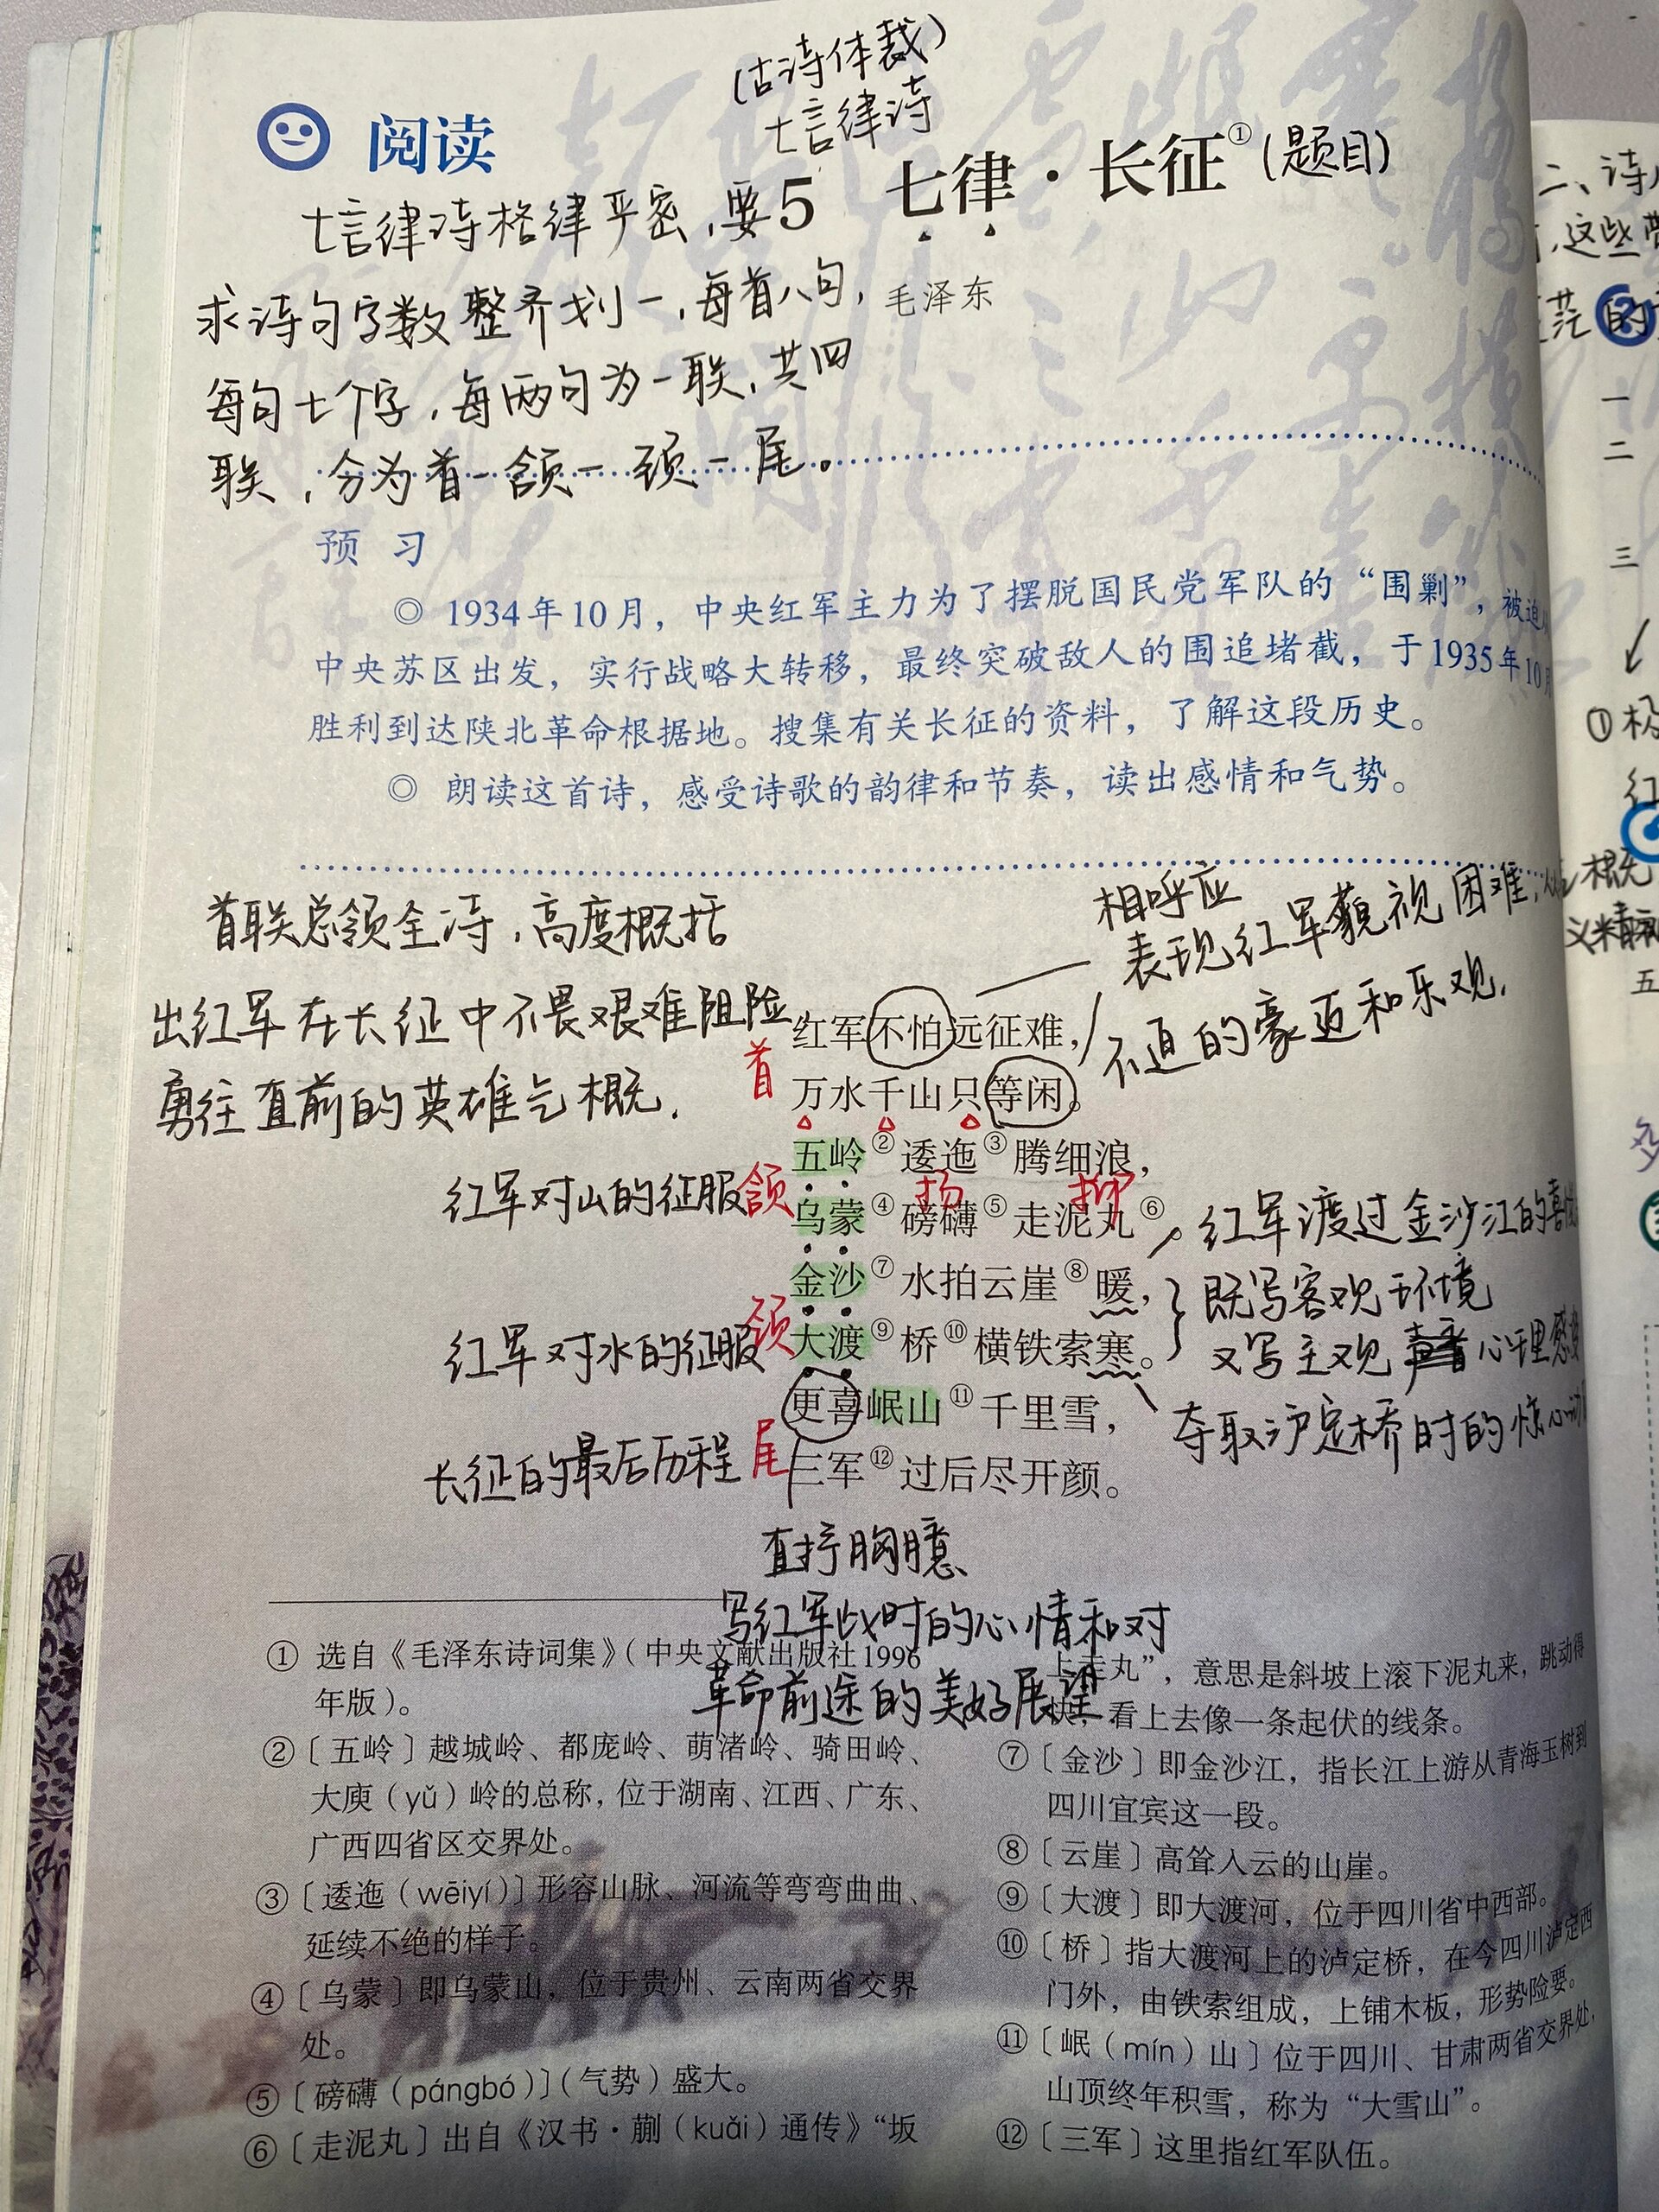 (古诗体裁)
七言律诗
阅读
5 七律·长征①(题目)
七言律诗格律严密,要
求诗句字数整齐划一,每首八句,
毛泽东
每句七个字,每两句为一联,共四
联,分为首-颔-颈-尾。
预 习
◎ 1934年10月,中央红军主力为了摆脱国民党军队的“围剿”,被迫
中央苏区出发,实行战略大转移,最终突破敌人的围追堵截,于1935年10月
胜利到达陕北革命根据地。搜集有关长征的资料,了解这段历史。
◎ 朗读这首诗,感受诗歌的韵律和节奏,读出感情和气势。
首联总领全诗,高度概括
出红军在长征中不畏艰难阻险,
勇往直前的英雄气概.
相呼应
表现红军藐视困难,
不迫的豪迈和乐观.
首
红军不怕远征难,
万水千山只等闲。
红军对山的征服
颔
五岭②逶迤③腾细浪,
扬 抑
乌蒙④磅礴⑤走泥丸⑥。
红军渡过金沙江的喜
红军对水的征服
颈
金沙⑦水拍云崖⑧暖,
大渡⑨桥⑩横铁索寒。
既写客观环境
又写主观心理感
夺取泸定桥时的惊心动
长征的最后历程
尾
更喜岷山⑪千里雪,
三军⑫过后尽开颜。
直抒胸臆
写红军战时的心情和对
革命前途的美好展望
① 选自《毛泽东诗词集》(中央文献出版社1996
年版)。
②〔五岭〕越城岭、都庞岭、萌渚岭、骑田岭、
大庾(yǔ)岭的总称,位于湖南、江西、广东、
广西四省区交界处。
③〔逶迤(wēiyí)〕形容山脉、河流等弯弯曲曲、
延续不绝的样子。
④〔乌蒙〕即乌蒙山,位于贵州、云南两省交界
处。
⑤〔磅礴(pángbó)〕(气势)盛大。
⑥〔走泥丸〕出自《汉书·蒯(kuǎi)通传》“坂
上走丸”,意思是斜坡上滚下泥丸来,跳动得
快,看上去像一条起伏的线条。
⑦〔金沙〕即金沙江,指长江上游从青海玉树到
四川宜宾这一段。
⑧〔云崖〕高耸入云的山崖。
⑨〔大渡〕即大渡河,位于四川省中西部。
⑩〔桥〕指大渡河上的泸定桥,在今四川泸定西
门外,由铁索组成,上铺木板,形势险要。
⑪〔岷(mín)山〕位于四川、甘肃两省交界处,
山顶终年积雪,称为“大雪山”。
⑫〔三军〕这里指红军队伍。
二、诗
,这些
的
一
二
三
①
红
概
义精神
五